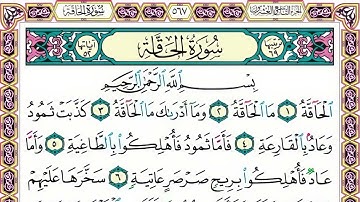 سُورَةُ الْحَاقَّةِ ٥٦٧ الجزء التاسع والعشرون
ترتيبها ٦٩ سُورَةُ الْحَاقَّةِ آياتها ٥٢
بِسْمِ اللَّهِ الرَّحْمَٰنِ الرَّحِيمِ
الْحَاقَّةُ ١ مَا الْحَاقَّةُ ٢ وَمَا أَدْرَىٰكَ مَا الْحَاقَّةُ ٣ كَذَّبَتْ ثَمُودُ
وَعَادٌ بِالْقَارِعَةِ ٤ فَأَمَّا ثَمُودُ فَأُهْلِكُوا بِالطَّاغِيَةِ ٥ وَأَمَّا
عَادٌ فَأُهْلِكُوا بِرِيحٍ صَرْصَرٍ عَاتِيَةٍ ٦ سَخَّرَهَا عَلَيْهِمْ